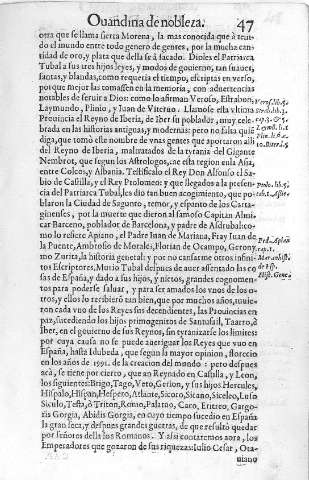 Ouandina de nobleza. 47
otra que se llama sierra Morena, la mas conocida que à teni-
do el mundo entre todo genero de gentes, por la mucha can-
tidad de oro, y plata que della se à sacado. Dioles el Patriarca
Tubal a sus tres hijos leyes, y modos de gouierno, tan suaues,
santas, y blandas, como requeria el tiempo, escriptas en verso,
porque mejor las tomassen en la memoria, con aduertencias
notables de seruir a Dios: como lo afirman Veroso, Estrabon,
Laymundo, Plinio, y Juan de Viteruo. Llamose esta vltima
Prouincia el Reyno de Iberia, de Iber su poblador, muy cele-
brada en las historias antiguas, y modernas: pero no falta quie
diga, que tomò este nombre de vnas gentes que aportaron alli
del Reyno de Iberia, maltratados de la tyrania del Gigante
Nembrot, que segun los Astrologos, esta region en la Asia,
entre Colcos, y Albania. Testificalo el Rey Don Alfonso el Sa-
bio de Castilla, y el Rey Ptolomeo: y que llegados a la presen-
cia del Patriarca Tubal, les dio tan buen acogimiento, que po-
blaron la Ciudad de Sagunto, temor, y espanto de los Carta-
ginenses, por la muerte que dieron al famoso Capitan Amil-
car Barceno, poblador de Barcelona, y padre de Asdrubal: co-
mo lo refiere Apiano, el Padre Iuan de Mariana, Fray Iuan de
la Puente, Ambrosio de Morales, Florian de Ocampo, Gerony-
mo Zurita, la historia general: y por no cansarme otros infini-
tos Escriptores. Murio Tubal despues de auer assentado las co-
sas de España, y dado a sus hijos, y nietos, grandes cognomen-
tos para poderse saluar, y para ser amados los vnos de los o-
tros, y ellos lo recibierõ tan bien, que por muchos años, tuuie-
ron cada vno de los Reyes sus decendientes, las Prouincias en
paz, sucediendo los hijos primogenitos de
Iber, en el gouierno de sus Reynos, sin tyranizarse los limites:
por cuya causa no se puede aueriguar los Reyes que vuo en
España, hasta Idubeda, que segun la mayor opinion, florecio
en los años de 1991. de la creacion del mundo: pero despues
acà, se tiene por cierto, que an Reynado en Castilla, y Leon,
los siguientes: Brigo, Tago, Veto, Gerion, y sus hijos, Hercules,
Hispalo, Hispan, Hespero, Atlante, Sicoro, Sicano, Siceleo, Luso
Siculo, Testa, ò Triton, Romo, Palatuo, Caco, Eritreo, Gargo-
ris Gorgia, Abidis Gorgia, en cuyo tiempo sucedio en España
la gran seca, y despues grandes guerras, de que resultò quedar
por señores della los Romanos. Y assi contaremos aora, los
Emperadores que gozaron de sus riquezas: Iulio Cesar, Ota-
uiano